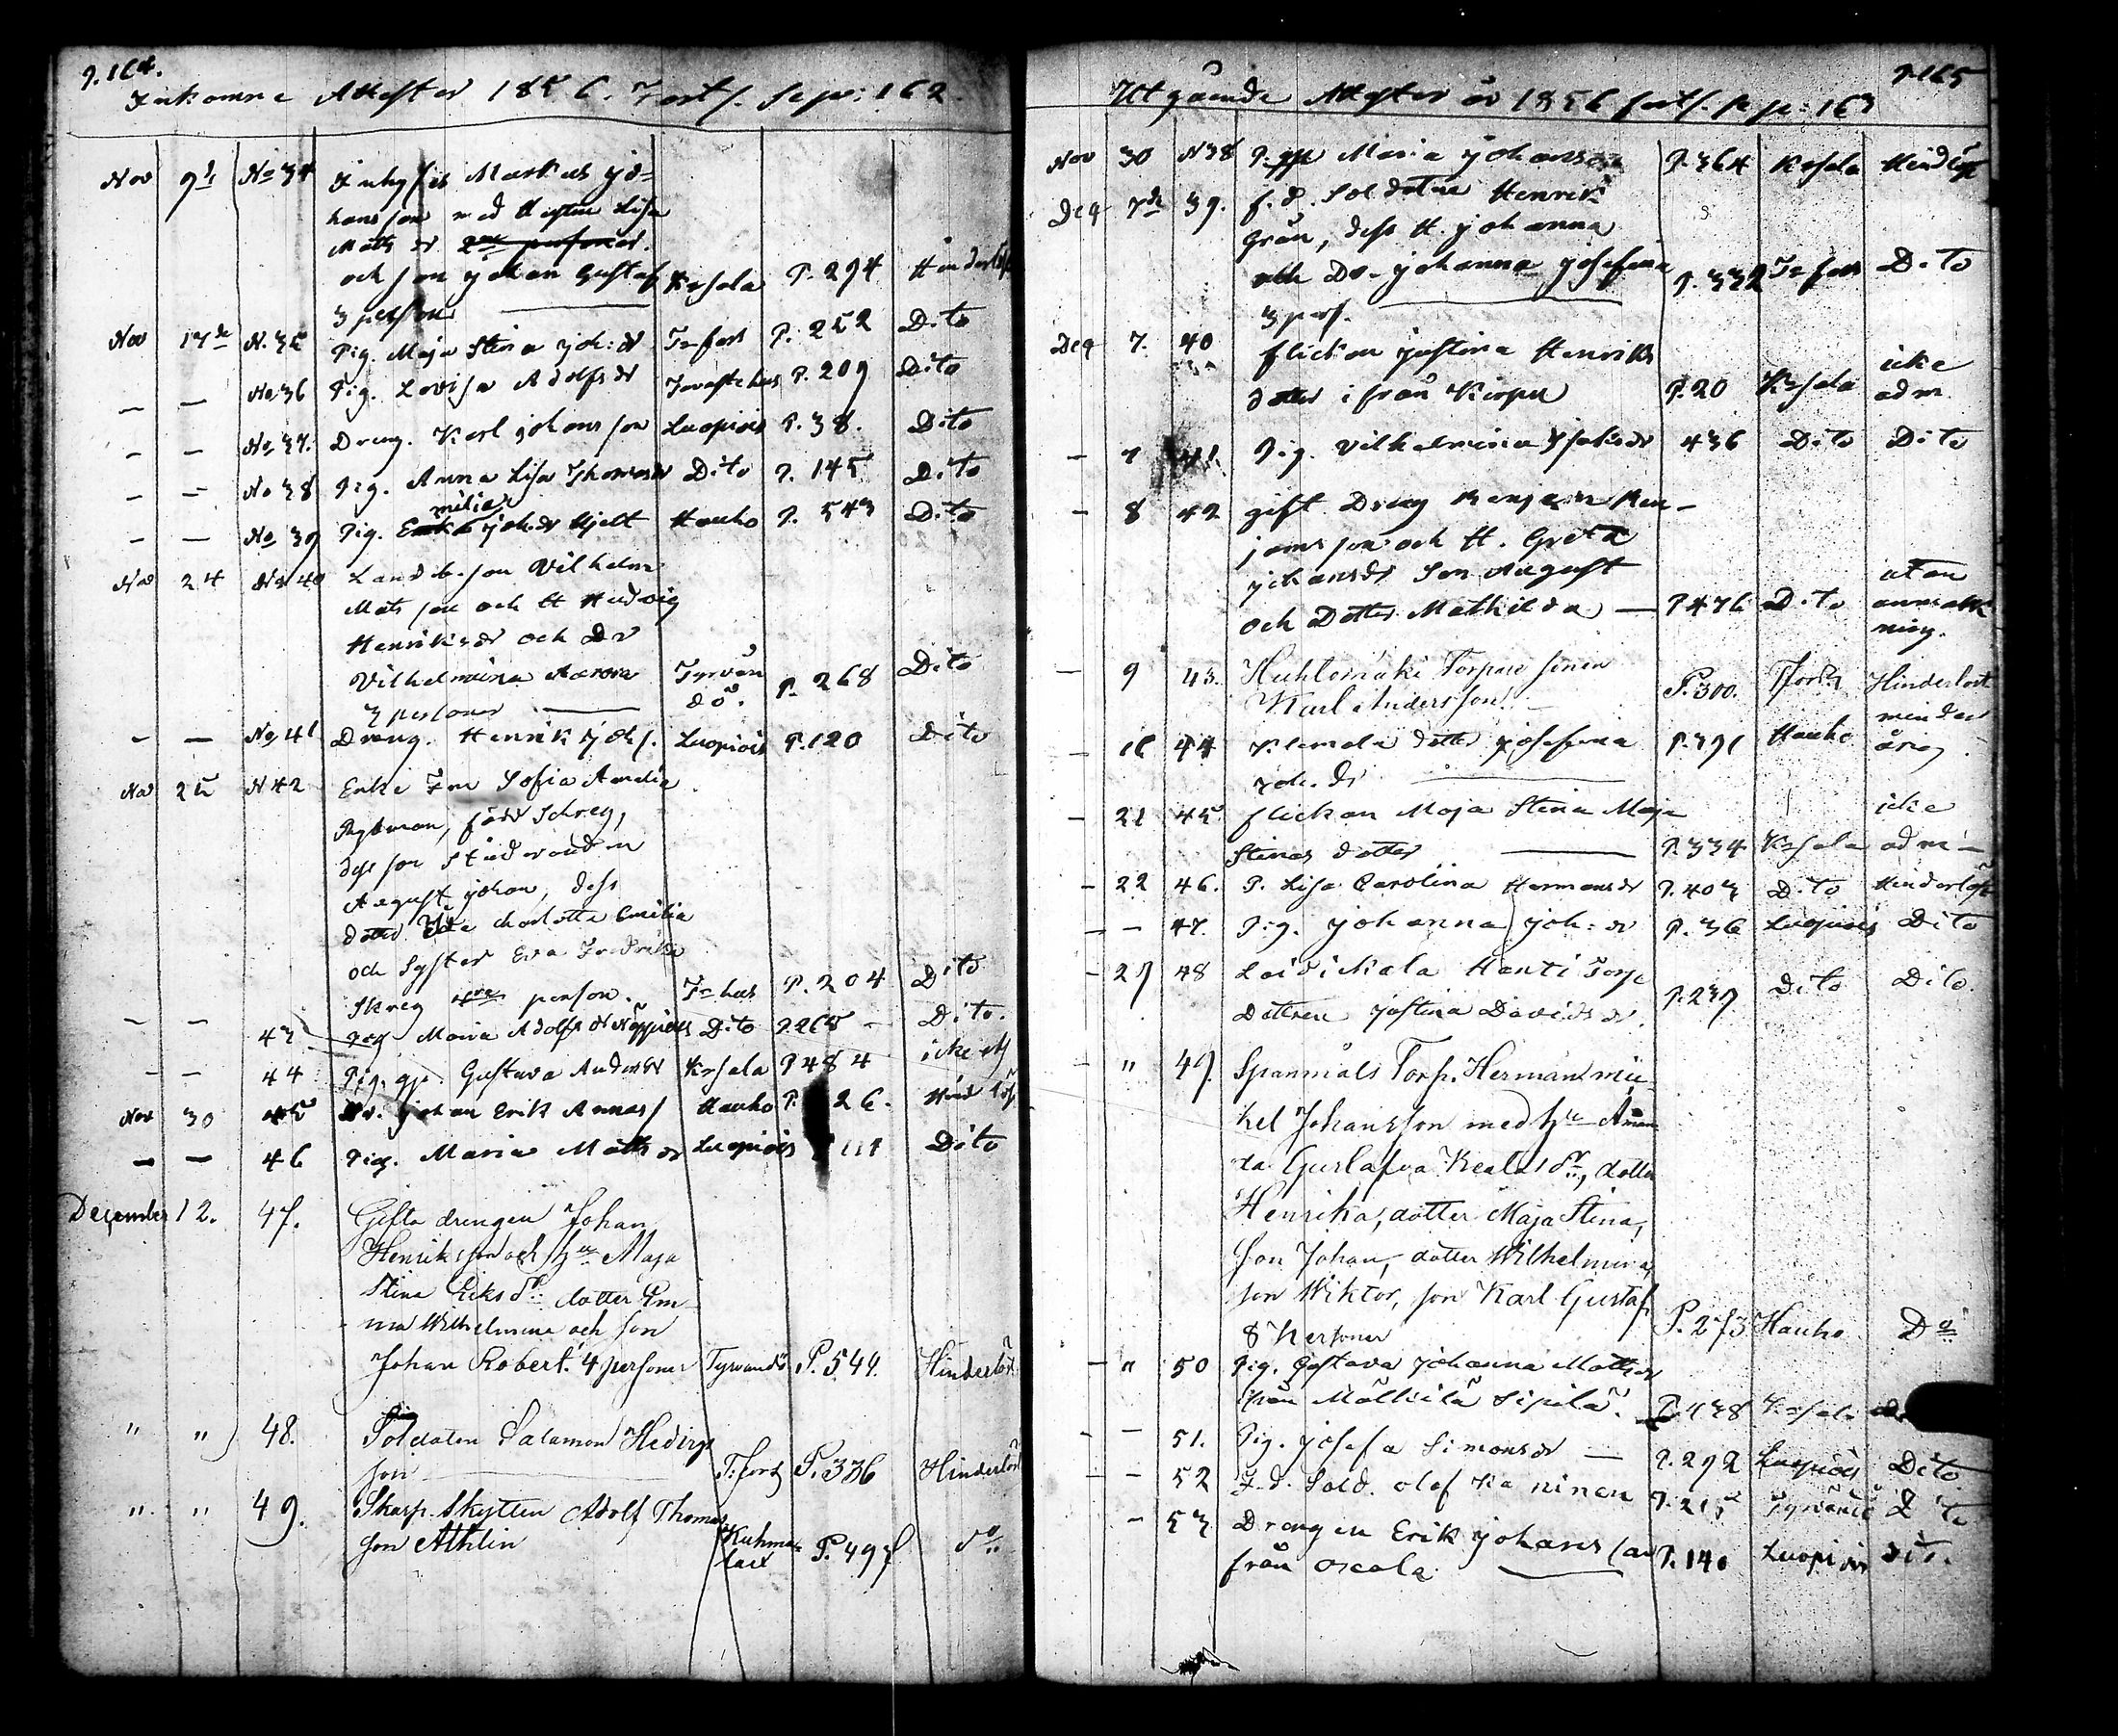 P. 164.
Inkomne Attester 1856. Forts. se p: 162
Nov 9de No 34 Inhyses Markus Jo=
hansson med Hustru Lisa
Matts dr 2ne personer.
och son Johan Gustaf Krsala P. 294 Hinderlös
3 person
Nov 17de N. 35 Pig. Maja Stina Joh: dr T=fors P. 252 Dito
— — No 36 Pig. Lovisa Adolfs dr Tavastehus P. 209 Dito
— — No 37. Dreng. Karl Johansson Luopiois P. 38. Dito
— — No 38 Pig. Anna Lisa Thomasdr Dito P. 145 Dito
milia
— — No 39 Pig. Joh.dr Hjelt Hauho P. 543 Dito
Nov 24 No 40 Landb. son Vilhelm
Mats son och H Hedvig
Henriksdr och Dr
Vilhelmina Aurora Tyrvän P. 268 Dito
3 personer dö.
— — No 41 Dreng. Henrik Johs. Luopiois P. 120 Dito
Nov 25 N 42 Enke Fru Sofia Amelia
född Schreg,
dess son Studeranden
August Johan, dess
dotter Charlotta Emilia
och Syster Eva Fredrika
Skreg person. T=hus P. 204 Dito
— — 43 Pig Maria Adolfs dr Dito P. 265 — Dito.
— — 44 Pig. Gustava Andersdr Krsala P 484 icke
Nov 30 45 Dr. Johan Erik Hauho P. 26. Hind lös
— — 46 Pig. Maria Matts dr Luopiois 114 Dito
December 12. 47. Gifta drengen Johan
Henriksson och hu Maja
Stina Eriks dr dotter Em-
ma Wilhelmina och son
Johan Robert. 4 personer Tyrvändö P. 544. Hinderlöst
" " 48. Soldaten Salamon Hedvigs
son T:fors P. 336 Hinderlös
" " 49. Skarp Skytten Adolf Thomas
son Athlin Kuhma= P. 497 do
laxi
P. 165
Utgående Attester år 1856 forts. fr p: 163
Nov 30 N 38 P. Maria Johansson P. 364 Krsala Hindlöst
Dec 7de 39. f. d. Soldaten Henrik
Grån, dess H. Johanna
och Dr. Johanna Josefina P. 332 T=fors Dito
3 pers.
Dec 7. 40 flickan Justina Henriks icke
dotter ifrån Kirpu P. 20 Krsala adm
— 7 41. Pig. Vilhelmina Isaksdr 436 Dito Dito
— 8 42 gift Dreng Benjam Ben-
jamsson och H. Greta
Johansdr Son August utan
och Dotter Mathilda — P 476 Dito anmärk
ning.
— 9 43. Huhlomäki Torpare sonen
Karl Andersson. P. 300. Tfors Hinderlöst
— 16 44 Klemola dotter Josefina P. 391 Hauho minder
Joh. dr årig
— 21 45 flickan Maja Stina Maja icke
Stinas dotter P. 334 Krsala adm—
— 22 46. P. Lisa Carolina Hermansdr P. 403 Dito Hinderlöst
— — 47. Pig. Johanna Joh: dr P. 36 Luopiois Dito
— 27 48 Laidikala Hanti Torp
Dottren Justina Davids dr. P. 239 Dito Dito.
— " 49. Spannmåls Torp. Herman mic-
kel Johansson med hu Aman
da Gustafva Kealas dr, dotter
Henrika, dotter Maja Stina,
son Johan, dotter Wilhelmina,
son Wiktor, son Karl Gustaf
8 Personer P. 273 Hauho Do
— " 50 Pig. Gustava Johanna Mattsdr
från Mälkilä Sipilä. P. 438 Krsala
— — 51. Pig. Josefa Simonsdr — P. 292 Luopiois Dito
— — 52 F. d. Sold. Olof Kaninen P. 215 Tyrvändö Dito
— 53 Drengen Erik Johansson P. 140 Luopiois Dit.
från Orcola